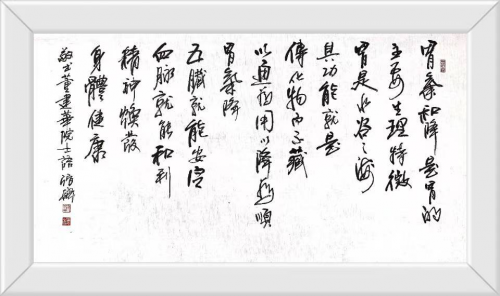 胃气和降是胃的
主要生理特徵
胃是水谷之海
其功能就是
传化物而不藏
以通为用以降为顺
胃气降
五臓就能安定
血脈就能和利
精神焕发
身體健康
敬书董建华院士语